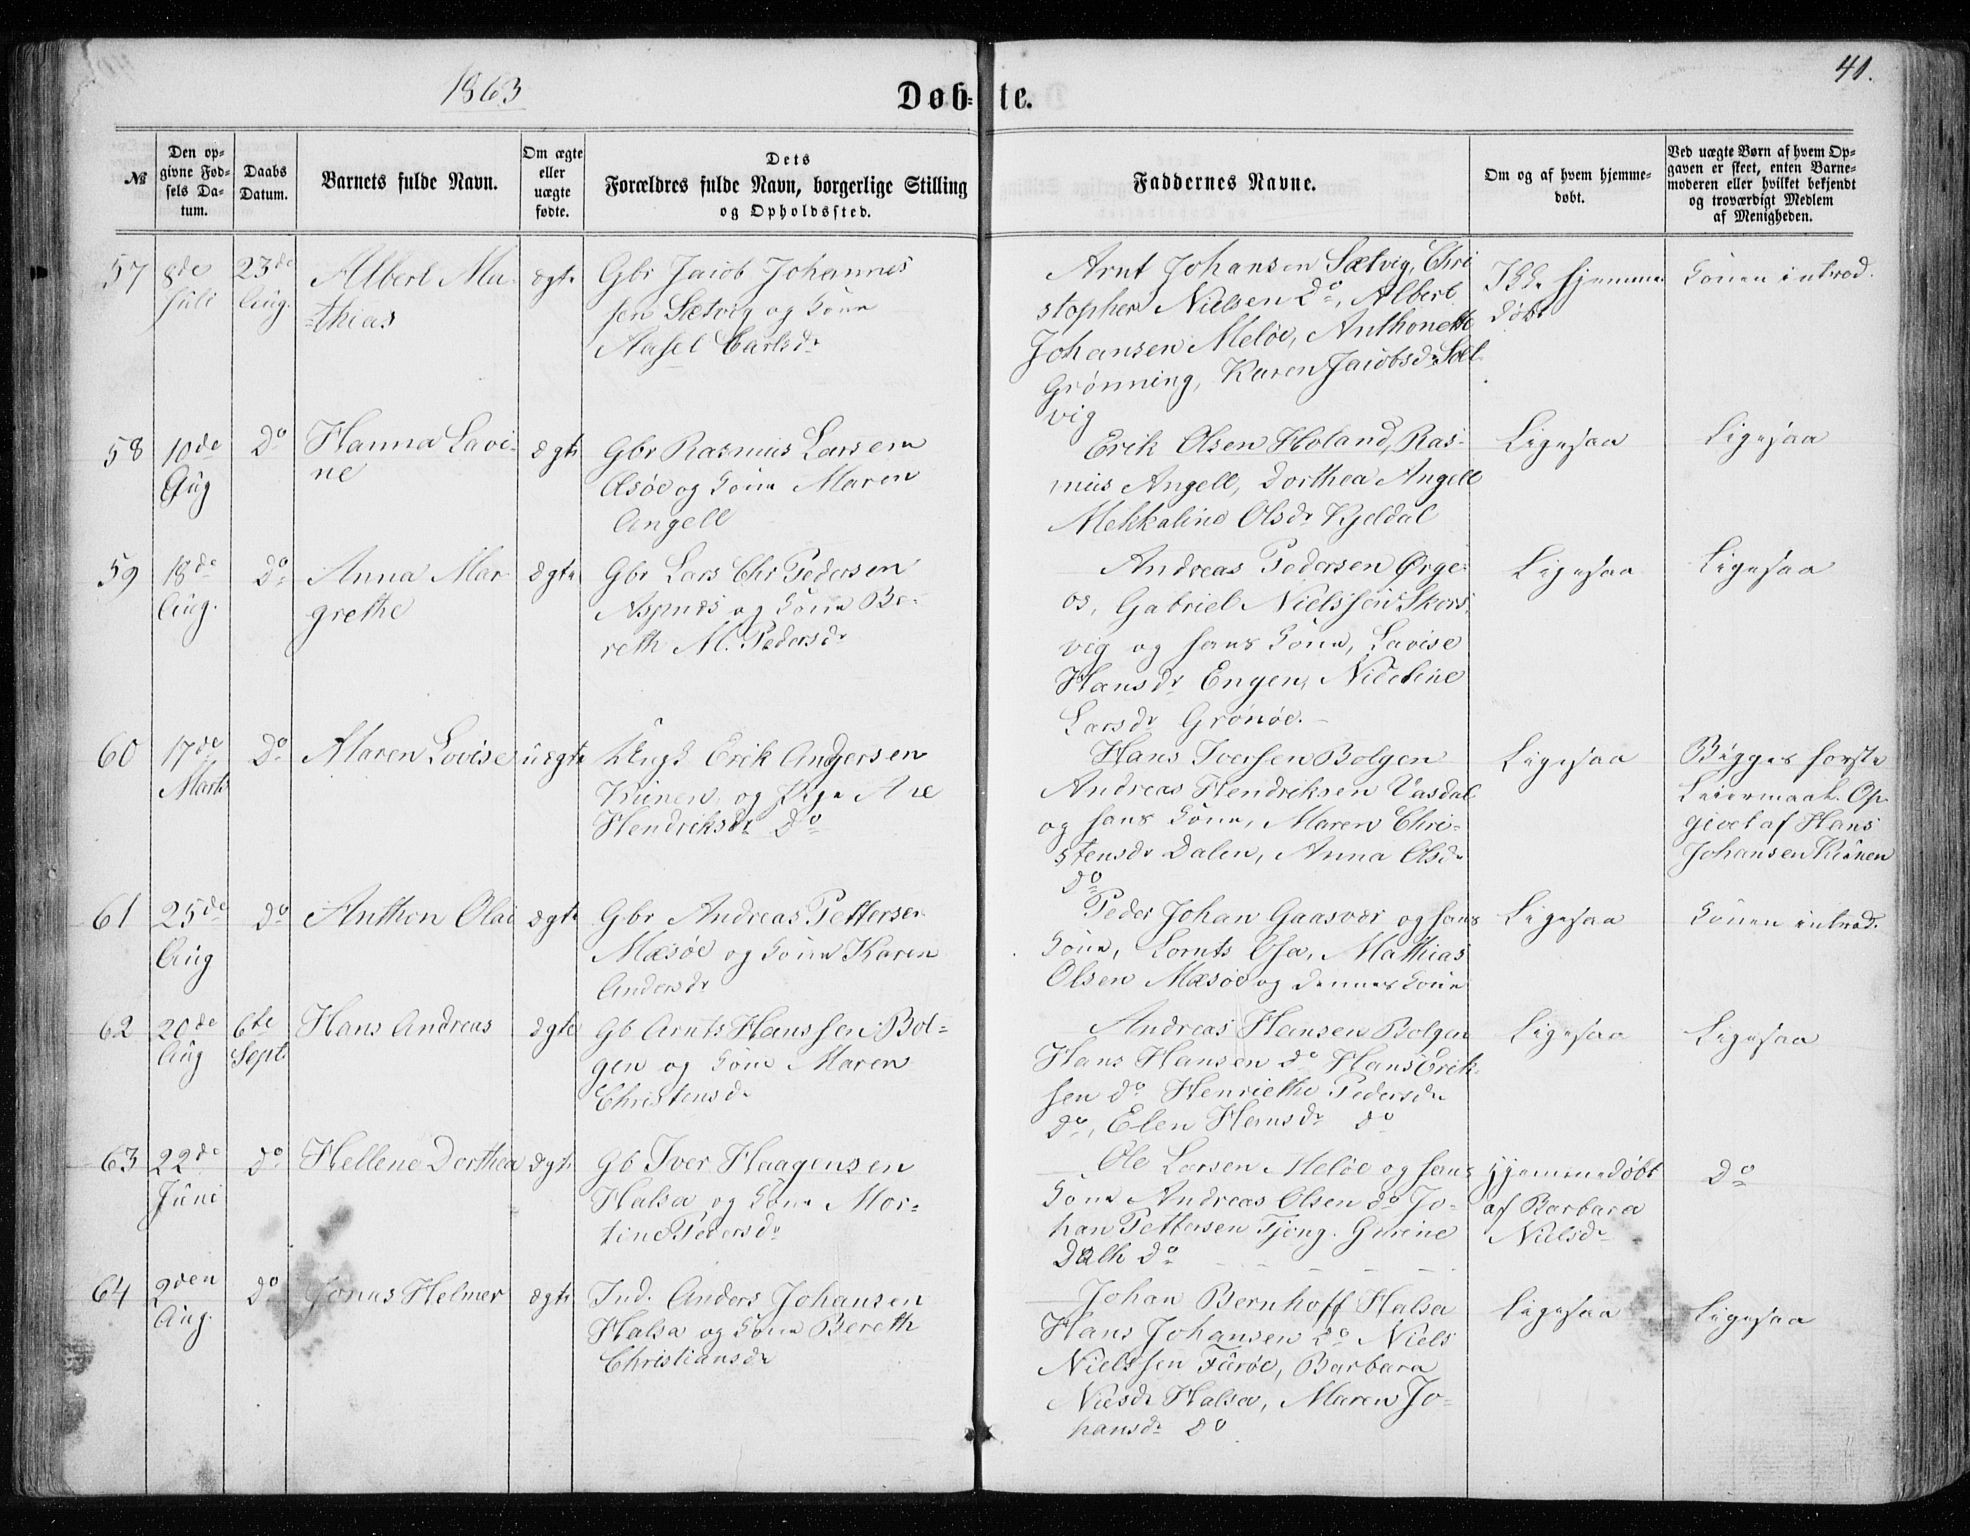 1863
Døb-te.
41.
№
Den opgivne Fødsels Datum.
Daabs Datum.
Barnets fulde Navn.
Om ægte eller uægte fødte.
Dets Forældres fulde Navn, borgerlige Stilling og Opholdssted.
Faddernes Navne.
Om og af hvem hjemmedøbt.
Ved uægte Børn af hvem Opgaven er skeet, enten Barnemoderen eller hvilket bekjendt og troværdigt Medlem af Menigheden.
57 8de Juli 23de Aug. Albert Mathias ægte
Gbr Jacob Johannes
sen Sætvig og Kone
Aasel Carlsdr
Arnt Johansen Sætvig, Chri
stopher Nielsen Do, Albert
Johansen Meløe, Anthonette
Grønning, Karen Jacobsdr Sæt
vig
Ikke hjemme
døbt
Konen introd.
58 10de Aug Do Hanna Lavine ægte
Gbr Rasmus Larsen
Æsøe og Kone Maren
Angell
Erik Olsen Høland, Ras-
mus Angell, Dorthea Angell
Mekkaline Olsdr Kjeldal
Ligesaa
Ligesaa
59 18de Aug. Do Anna Margrethe ægte
Gbr Lars Chr Pedersen
Aspnæs og Kone Be-
reth M. Pedersdr
Andreas Pedersen Ørge-
os, Gabriel Nielssen Skors
vig og hans Kone, Lovise
Hansdr Engen, Nicoline
Larsdr Grønøe.
Ligesaa
Ligesaa
60 17de Marts Do Maren Lovise uægte
Ungk Erik Andersen
Kunen og Pige Ane
Hendriksdr Do
Hans Iversen Bolgen
Andreas Hendriksen Vasdal
og hans Kone, Maren Chri-
stensdr Dalen, Anna Olsdr
Do
Ligesaa
Begges første
Leiermaal. Op
givet af Hans
Johansen Kunen
61 25de Aug Do Anthon Olai ægte
Gbr Andreas Pettersen
Mæsøe og Kone Karen
Andersdr
Peder Johan Gaasvær og hans
Kone, Lornts, Mathias
Olsen Mæsøe og dennes Kone
Ligesaa
Konen introd.
62 20de Aug 6te Sept. Hans Andreas ægte
Gb Arnts Hanssen Bol-
gen og Kone Maren
Christensdr
Andreas Hansen Bolgen
Hans Hansen do Hans Erik-
sen do Henriethe Pedersdr
Do, Elen Hansdr do
Ligesaa
Ligesaa
63 22de Juni do Hellene Dorthea ægte
Gb Iver Haagensen
Halsa og Kone Mor-
tine Pedersdr
Ole Larsen Meløe og hans
Kone Andreas Olsen do Jo-
han Pettersen Tjong. Gurine
Dalh Do
Hjemmedøbt
af Barbara
Nielsdr
Do
64 2den Aug. Do Jonas Helmer ægte
Ind. Anders Johansen
Halsa og Kone Bereth
Christiansdr
Johan Bernhoff Halsa
Hans Johansen Do Niels
Nielssen Furøe, Barbara
Nielsdr Halsa, Maren Jo-
hansdr do
Ligesaa
Ligesaa